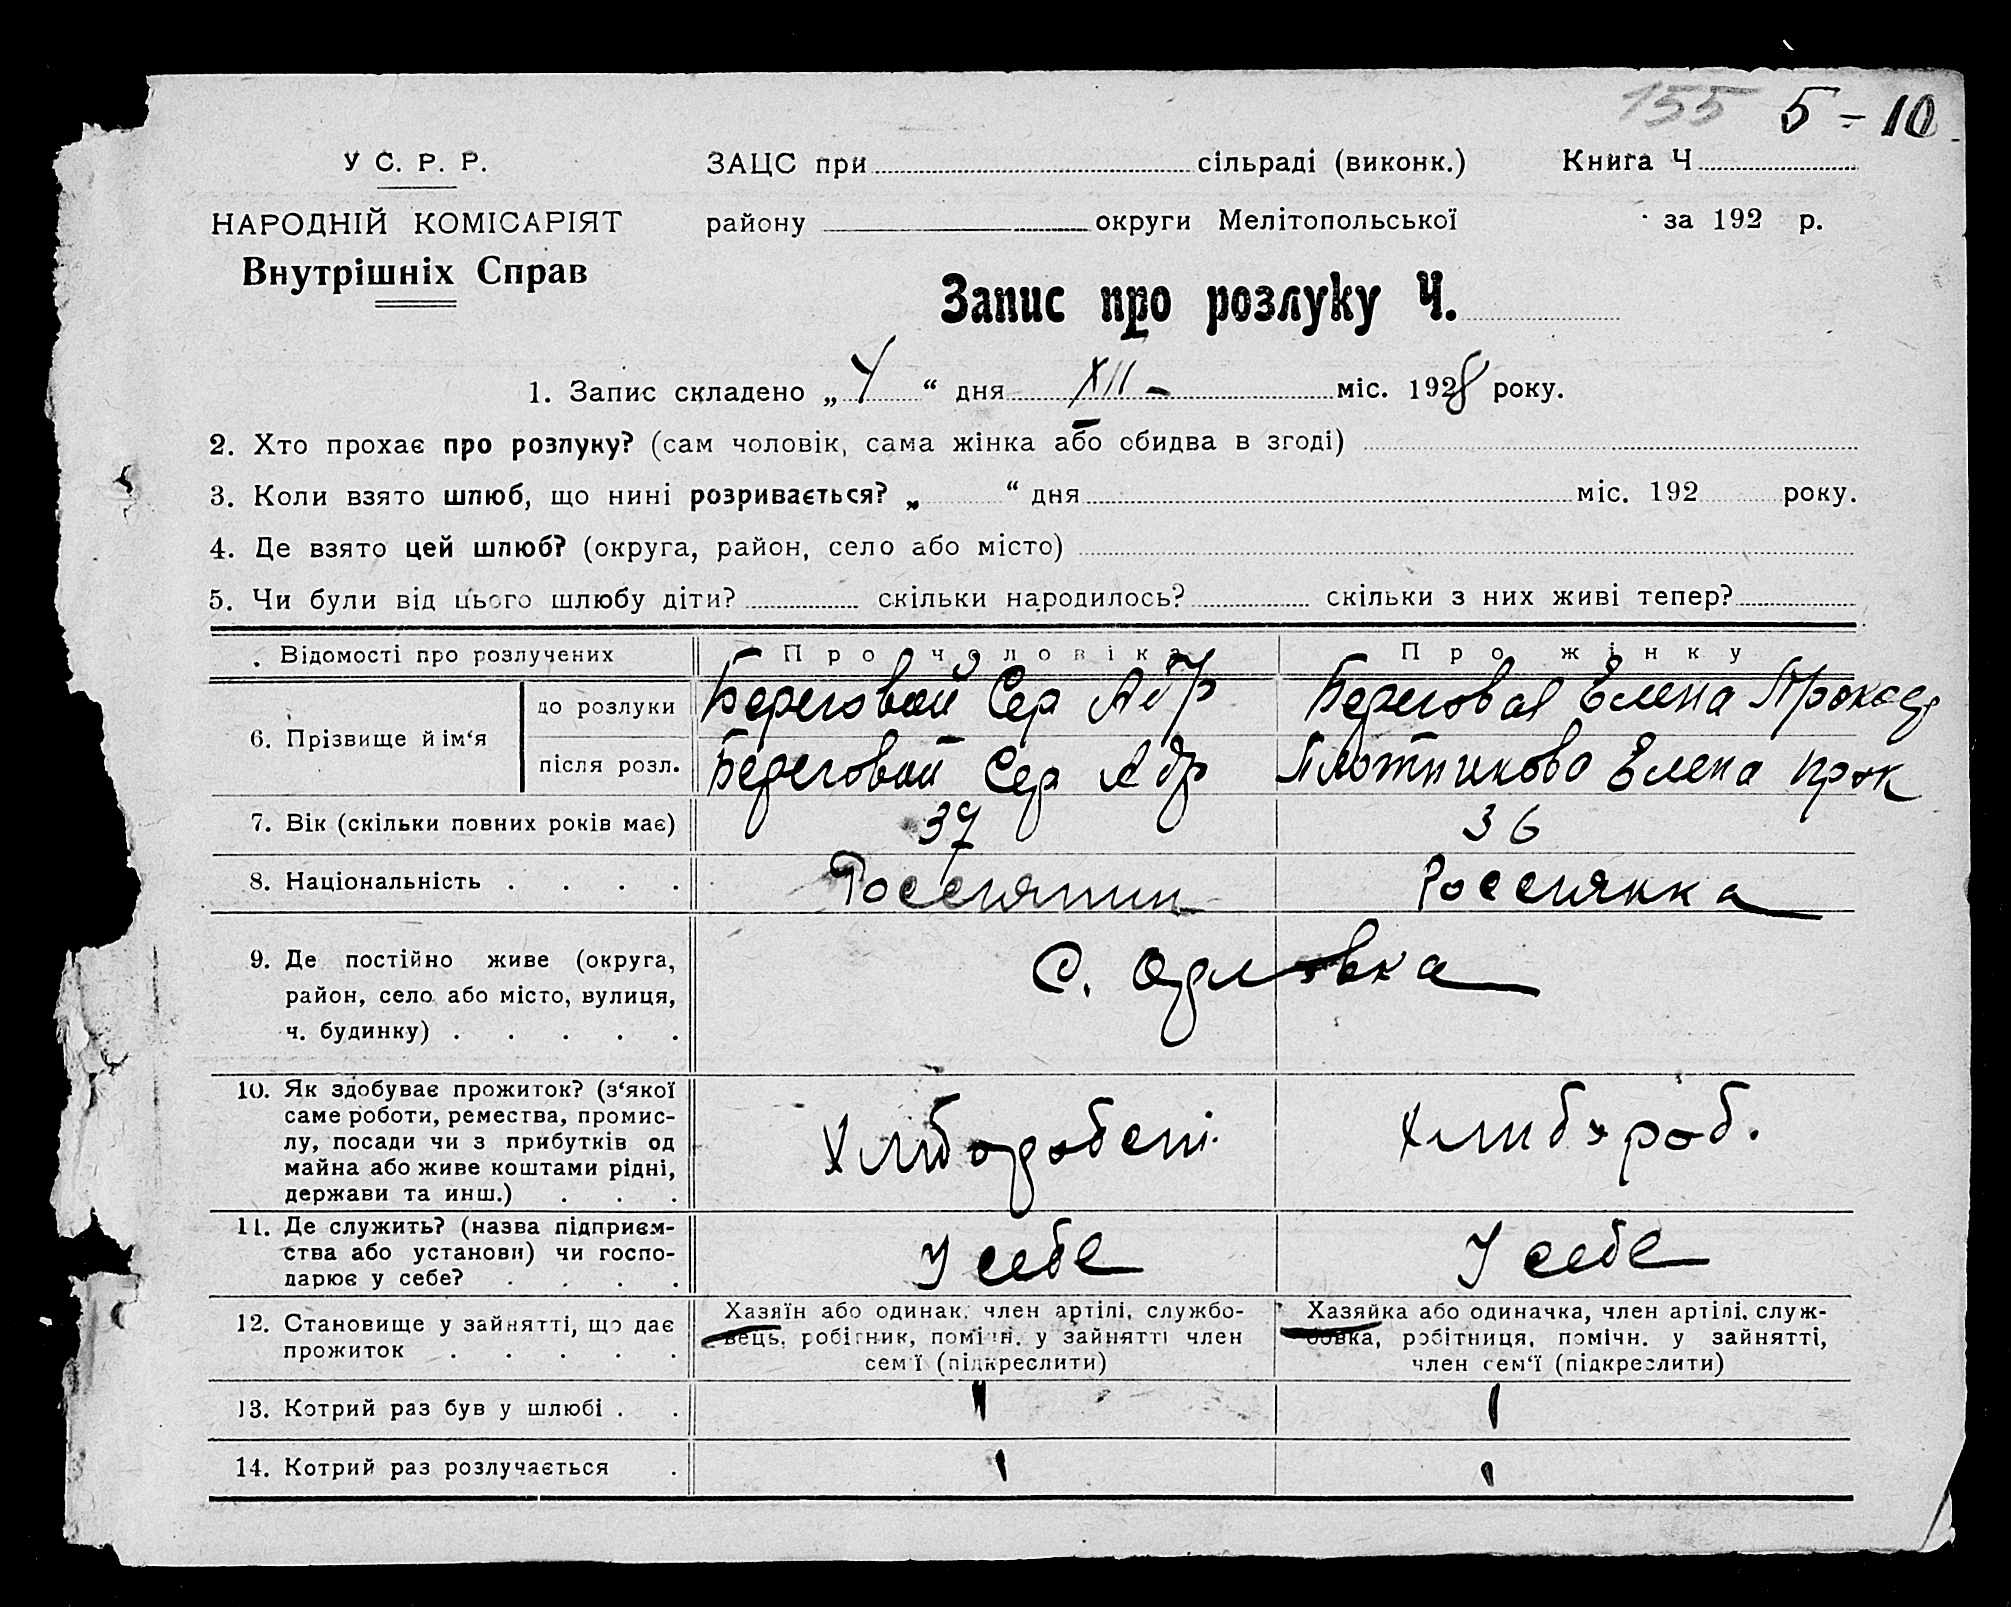 155 5-10
У С. Р. Р.
ЗАЦС при сільраді (виконк.) Книга Ч
НАРОДНІЙ КОМІСАРІЯТ
району округи Мелітопольської за 192 р.
Внутрішніх Справ
Запис про розлуку Ч.
1. Запис складено „4“ дня XII - міс. 1928 року.
2. Хто прохає про розлуку? (сам чоловік, сама жінка або обидва в згоді)
3. Коли взято шлюб, що нині розривається? „ “ дня міс. 192 року.
4. Де взято цей шлюб? (округа, район, село або місто)
5. Чи були від цього шлюбу діти? скільки народилось? скільки з них живі тепер?
Відомості про розлучених Про чоловіка Про жінку
6. Прізвище й ім‘я
до розлуки Береговой Сер Береговая Елена
після розл. Береговой Сер Плотникова Елена Прок
7. Вік (скільки повних років має) 37 36
8. Національність . . . . Россиянин Россиянка
9. Де постійно живе (округа,
район, село або місто, вулиця,
ч. будинку) . . . . .
С. Орловка
10. Як здобуває прожиток? (з‘якої
саме роботи, ремества, промис-
лу, посади чи з прибутків од
майна або живе коштами рідні,
держави та инш.) . . .
роб.
11. Де служить? (назва підприєм-
ства або установи) чи госпо-
дарює у себе? . . . .
У себе У себе
12. Становище у зайнятті, що дає
прожиток . . . . .
Хазяїн або одинак, член артілі, службо-
вець, робітник, помічн. у зайнятті член
сем‘ї (підкреслити)
Хазяйка або одиначка, член артілі, служ-
бовка, робітниця, помічн. у зайнятті,
член сем‘ї (підкреслити)
13. Котрий раз був у шлюбі . . 1 1
14. Котрий раз розлучається . 1 1